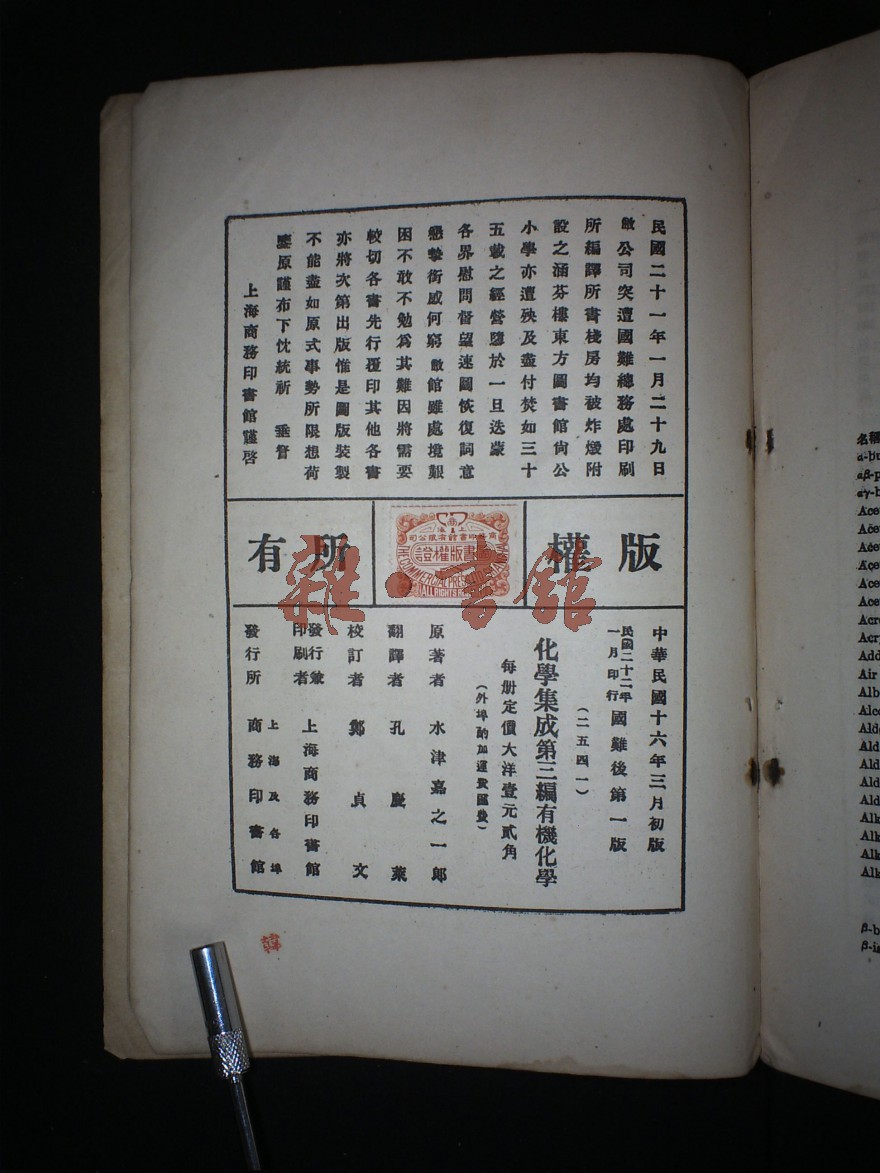 民國二十一年一月二十九日
敝公司突遭國難總務處印刷
所編譯所書棧房均被炸燬附
設之涵芬樓東方圖書館尙公
小學亦遭殃及盡付焚如三十
五載之經營隳於一旦迭蒙
各界慰問督望速圖恢復詞意
懇摯銜感何窮敝館雖處境艱
困不敢不勉爲其難因將需要
較切各書先行覆印其他各書
亦將次第出版惟是圖版裝製
不能盡如原式事勢所限想荷
鑒原謹布下忱統祈 垂詧
上海商務印書館謹啓
版權所有
商務印書館有限公司
書版權證
THE COMMERCIAL PRESS
ALL RIGHTS
雜·書館
中華民國十六年三月初版
民國二十二年一月印行 國難後第一版
(二五四一)
化學集成第三編有機化學
每册定價大洋壹元貳角
(外埠酌加運費匯費)
原著者 水津嘉之一郎
翻譯者 孔慶萊
校訂者 鄭貞文
發行兼印刷者 上海商務印書館
發行所 上海及各埠 商務印書館
名稱
α-bu
αβ-p
αγ-b
Acet
Acet
Acet
Acet
Acet
Acet
Acro
Acry
Add
Air
Alb
Alco
Alde
Ald
Ald
Ald
Ald
Alk
Alk
Alk
Alk
β-b
β-in